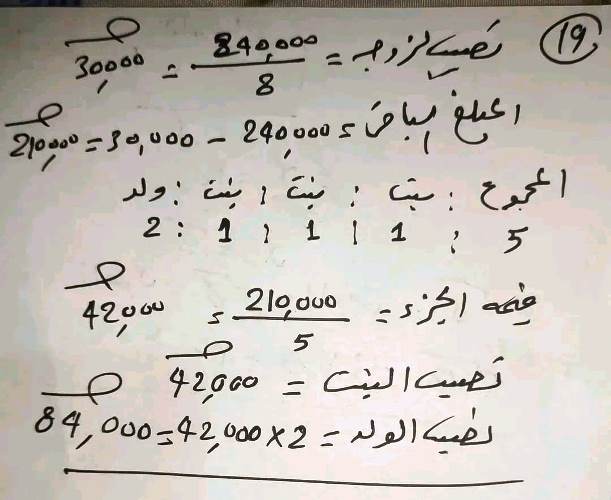 19
نصيب الزوجه = 240,000 / 8 = 30,000 جـ
المبلغ الباقى = 240,000 - 30,000 = 210,000 جـ
المجموع : بنت : بنت : بنت : ولد
5 : 1 : 1 : 1 : 2
قيمه الجزء = 210,000 / 5 = 42,000 جـ
نصيب البنت = 42,000 جـ
نصيب الولد = 2 × 42,000 = 84,000 جـ